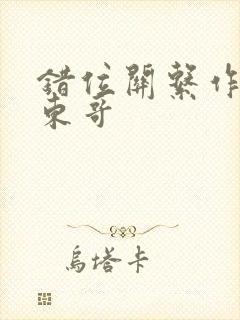 錯位關繫作
東哥
烏塔卡